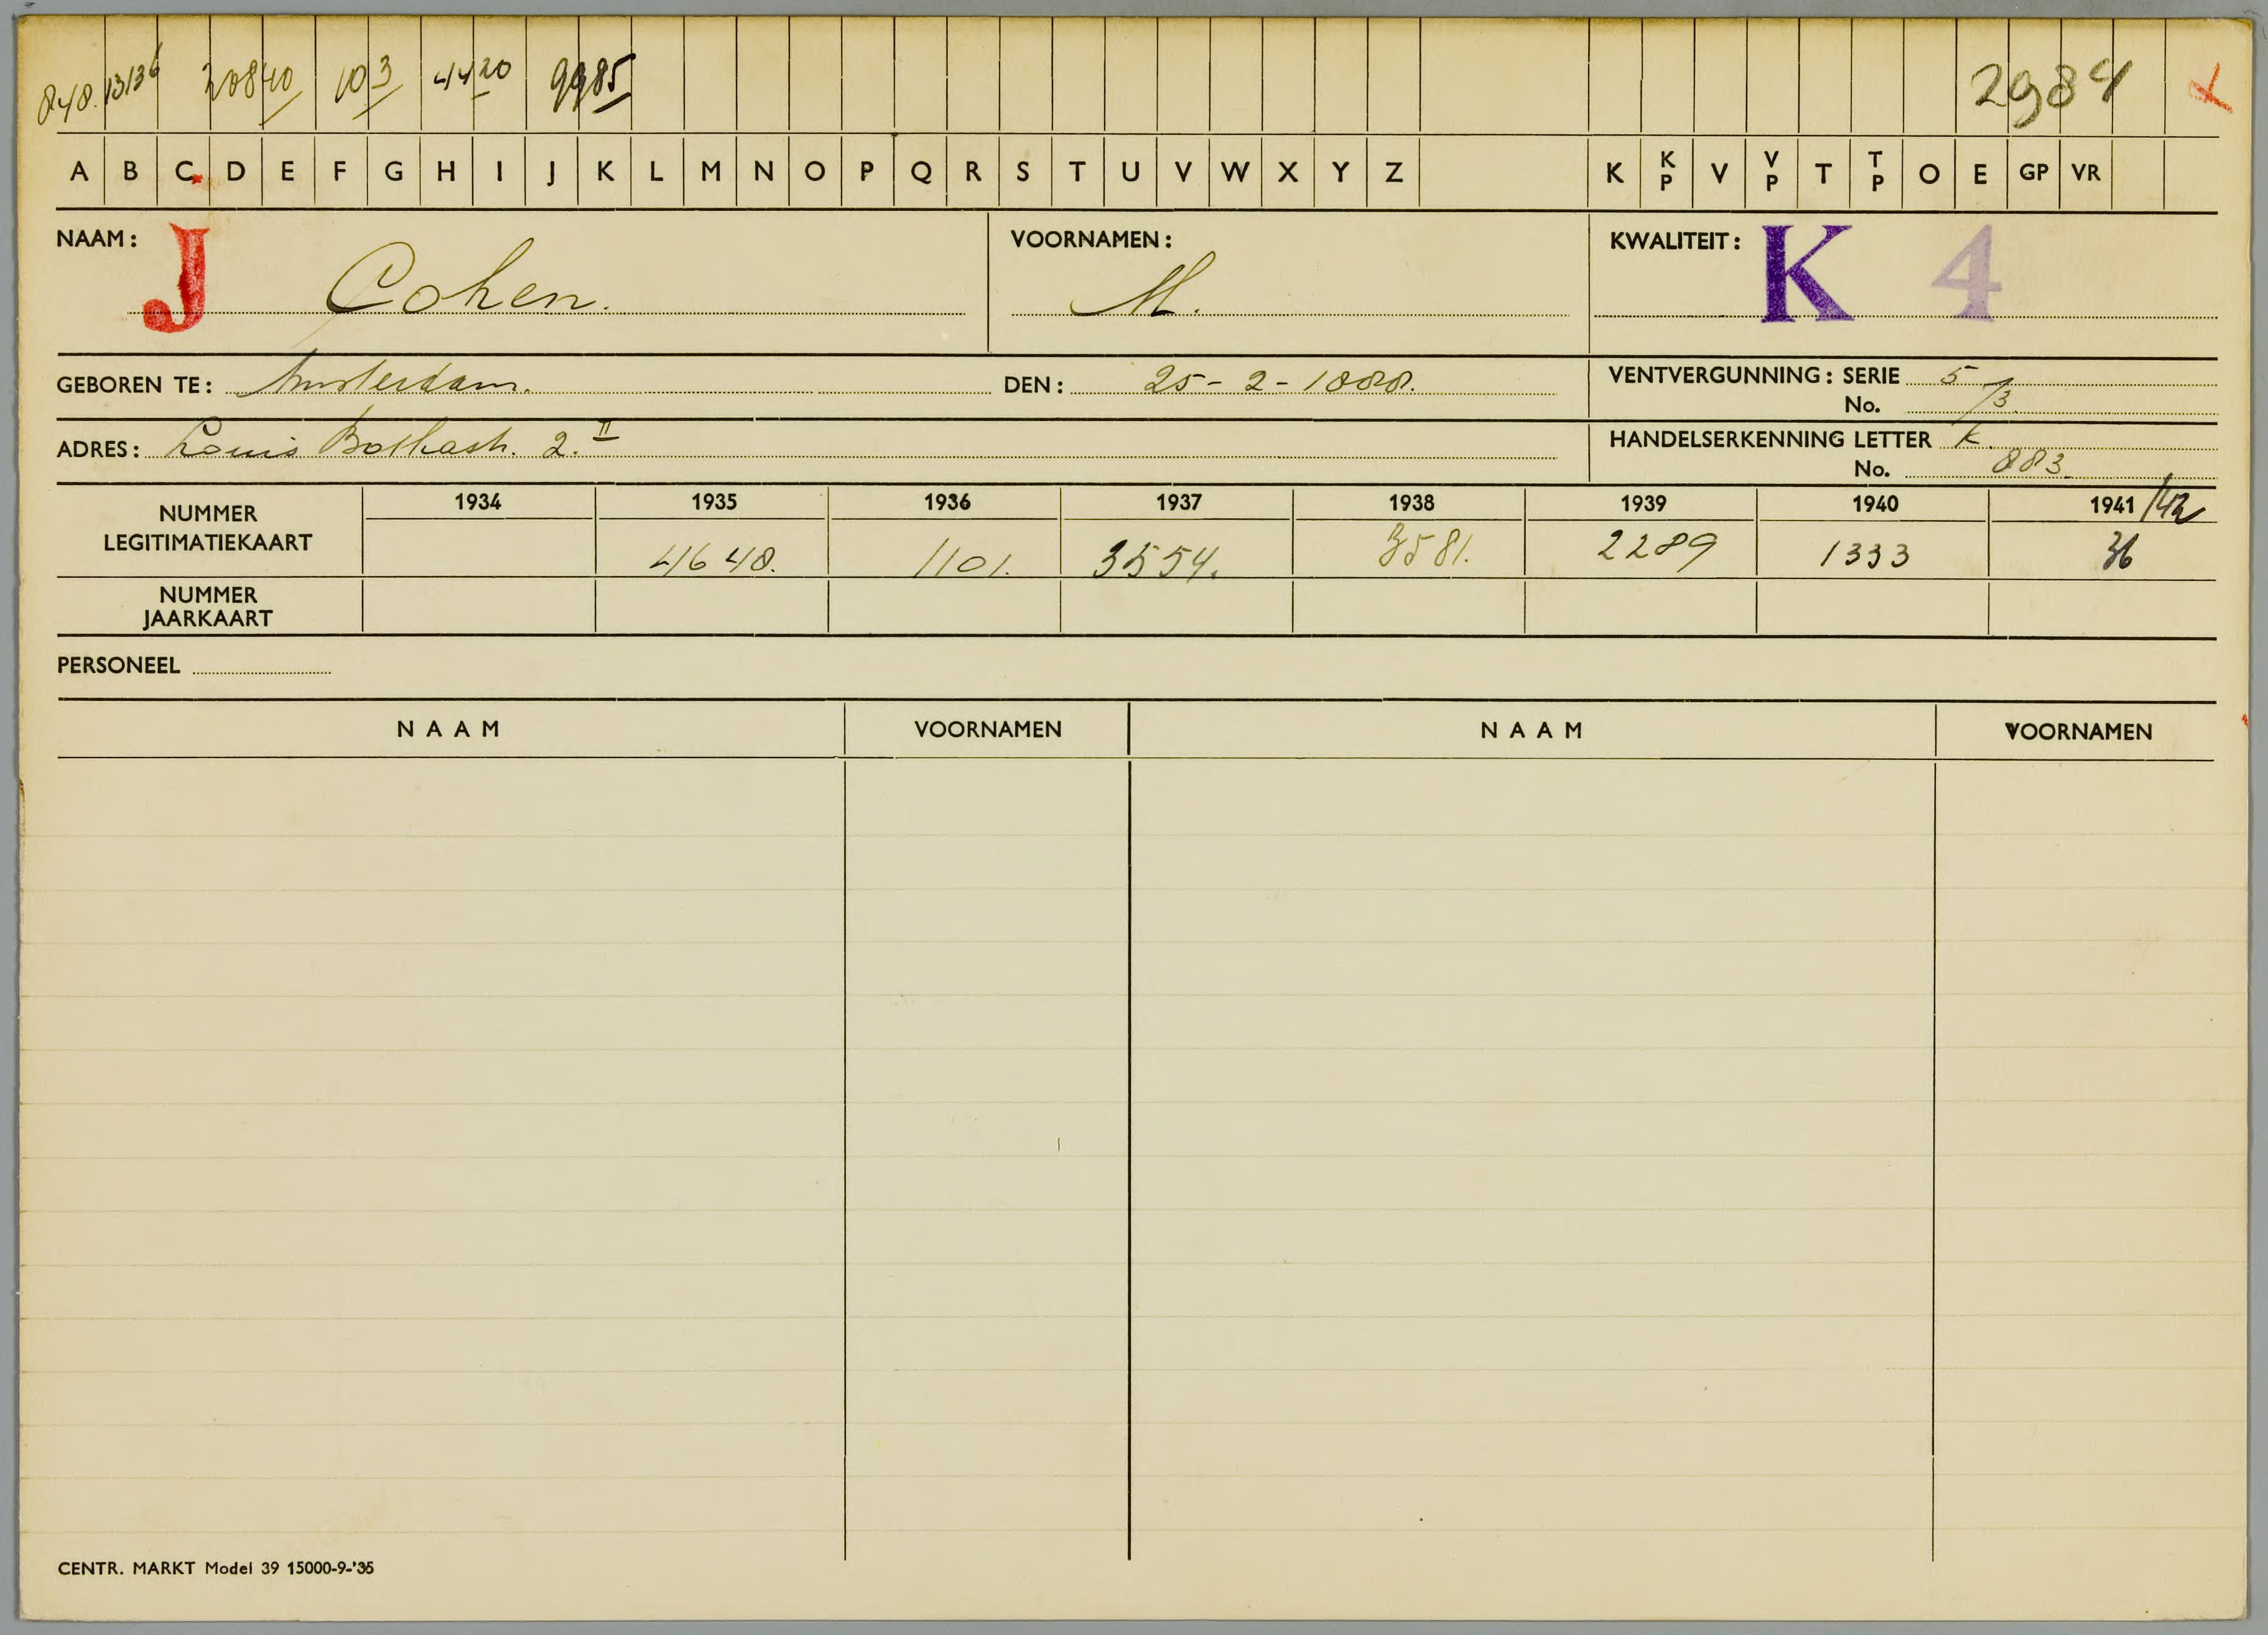 848. 13136 20840 103 4420 9985 2984 x
A B C D E F G H I J K L M N O P Q R S T U V W X Y Z K KP V VP T TP O E GP VR
NAAM: J Cohen. VOORNAMEN: M. KWALITEIT: K 4
GEBOREN TE: Amsterdam. DEN: 25-2-1888. VENTVERGUNNING: SERIE 5
No. /3.
ADRES: Louis Bothastr. 2 II HANDELSERKENNING LETTER K.
No. 883
NUMMER LEGITIMATIEKAART 1934 1935 1936 1937 1938 1939 1940 1941/42
4648. 1101. 3554. 3581. 2289 1333 36
NUMMER JAARKAART
PERSONEEL
NAAM VOORNAMEN NAAM VOORNAMEN
CENTR. MARKT Model 39 15000-9-'35